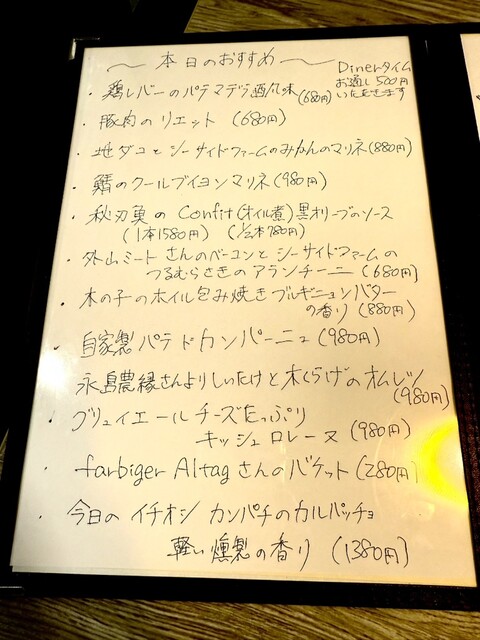 ～ 本日のおすすめ ～
Dinerタイム
お通し500円
いただきます
・鶏レバーのパテマデラ酒風味(680円)
・豚肉のリエット (680円)
・地ダコとシーサイドファームのみかんのマリネ(880円)
・鯖のクールブイヨンマリネ(980円)
・秋刀魚の Confit(オイル煮)黒オリーブのソース
(1本1580円) (1/2本780円)
・外山ミートさんのベーコンとシーサイドファームの
つるむらさきのアランチーニ(680円)
・木の子のホイル包み焼きブルギニョンバター
の香り(880円)
・自家製パテドカンパーニュ(980円)
永島農縁さんよりしいたけと木くらげのオムレツ
(980円)
・グリュイエールチーズたっぷり
キッシュロレーヌ(980円)
・farbiger Altagさんのバケット(280円)
・今日のイチオシ カンパチのカルパッチョ
軽い燻製の香り (1380円)